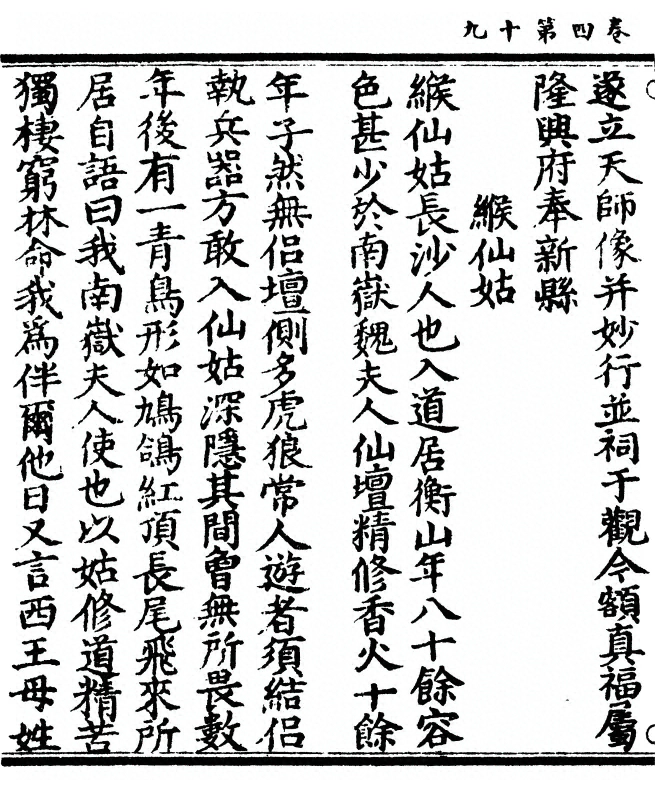 卷四第十九
遂立天師像并妙行並祠于觀今額真福屬
隆興府奉新縣
緱仙姑
緱仙姑長沙人也入道居衡山年八十餘容
色甚少於南嶽魏夫人仙壇精修香火十餘
年孑然無侶壇側多虎狼常人遊者須結侶
執兵器方敢入仙姑深隱其間曾無所畏數
年後有一青鳥形如鳩鴿紅頂長尾飛來所
居自語曰我南嶽夫人使也以姑修道精苦
獨棲窮林命我為伴爾他日又言西王母姓